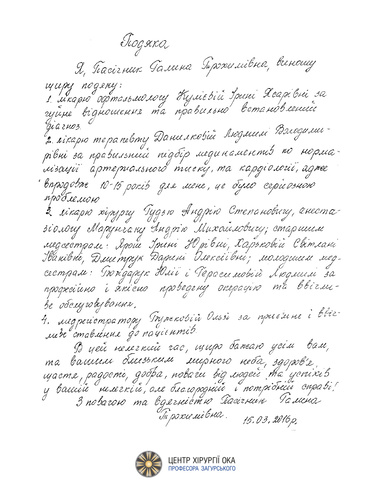 Подяка
Я, Пасічник Галина Трохимівна, виношу
щиру подяку:
1. лікарю офтальмологу Ірині Ясарівні за
чуйне відношення та правильно встановлений
діагноз.
2. лікарю терапевту Даниляковій Людмилі Володими-
рівні за правильний підбір медикаментів по норма-
лізації артеріального тиску, та кардіології, адже
впродовж 10-15 років для мене, це було серйозною
проблемою.
3. лікарю хірургу Гудзю Андрію Степановичу, анесте-
зіологу Марунчаку Андрію Михайловичу; старшим
медсестрам: Ярош Ірині Юріївні, Харьковій Світлані
Іванівні, Дмитрук Дарені Олексіївні; молодшим мед-
сестрам: Бондарук Юлії і Герасимовій Людмилі за
професійно і якісно проведену операцію та ввічли-
ве обслуговування.
4. медреєстратору Бужковій Ользі за приємне і ввіч-
ливе ставлення до пацієнтів.
В цей нелегкий час, щиро бажаю усім вам,
та вашим близьким мирного неба, здоров'я,
щастя, радості, добра, поваги від людей та успіхів
у вашій нелегкій, але благородній і потрібній справі!
З повагою та вдячністю Пасічник Галина
Трохимівна.
15.03.2016р.
ЦЕНТР ХІРУРГІЇ ОКА
ПРОФЕСОРА ЗАГУРСЬКОГО